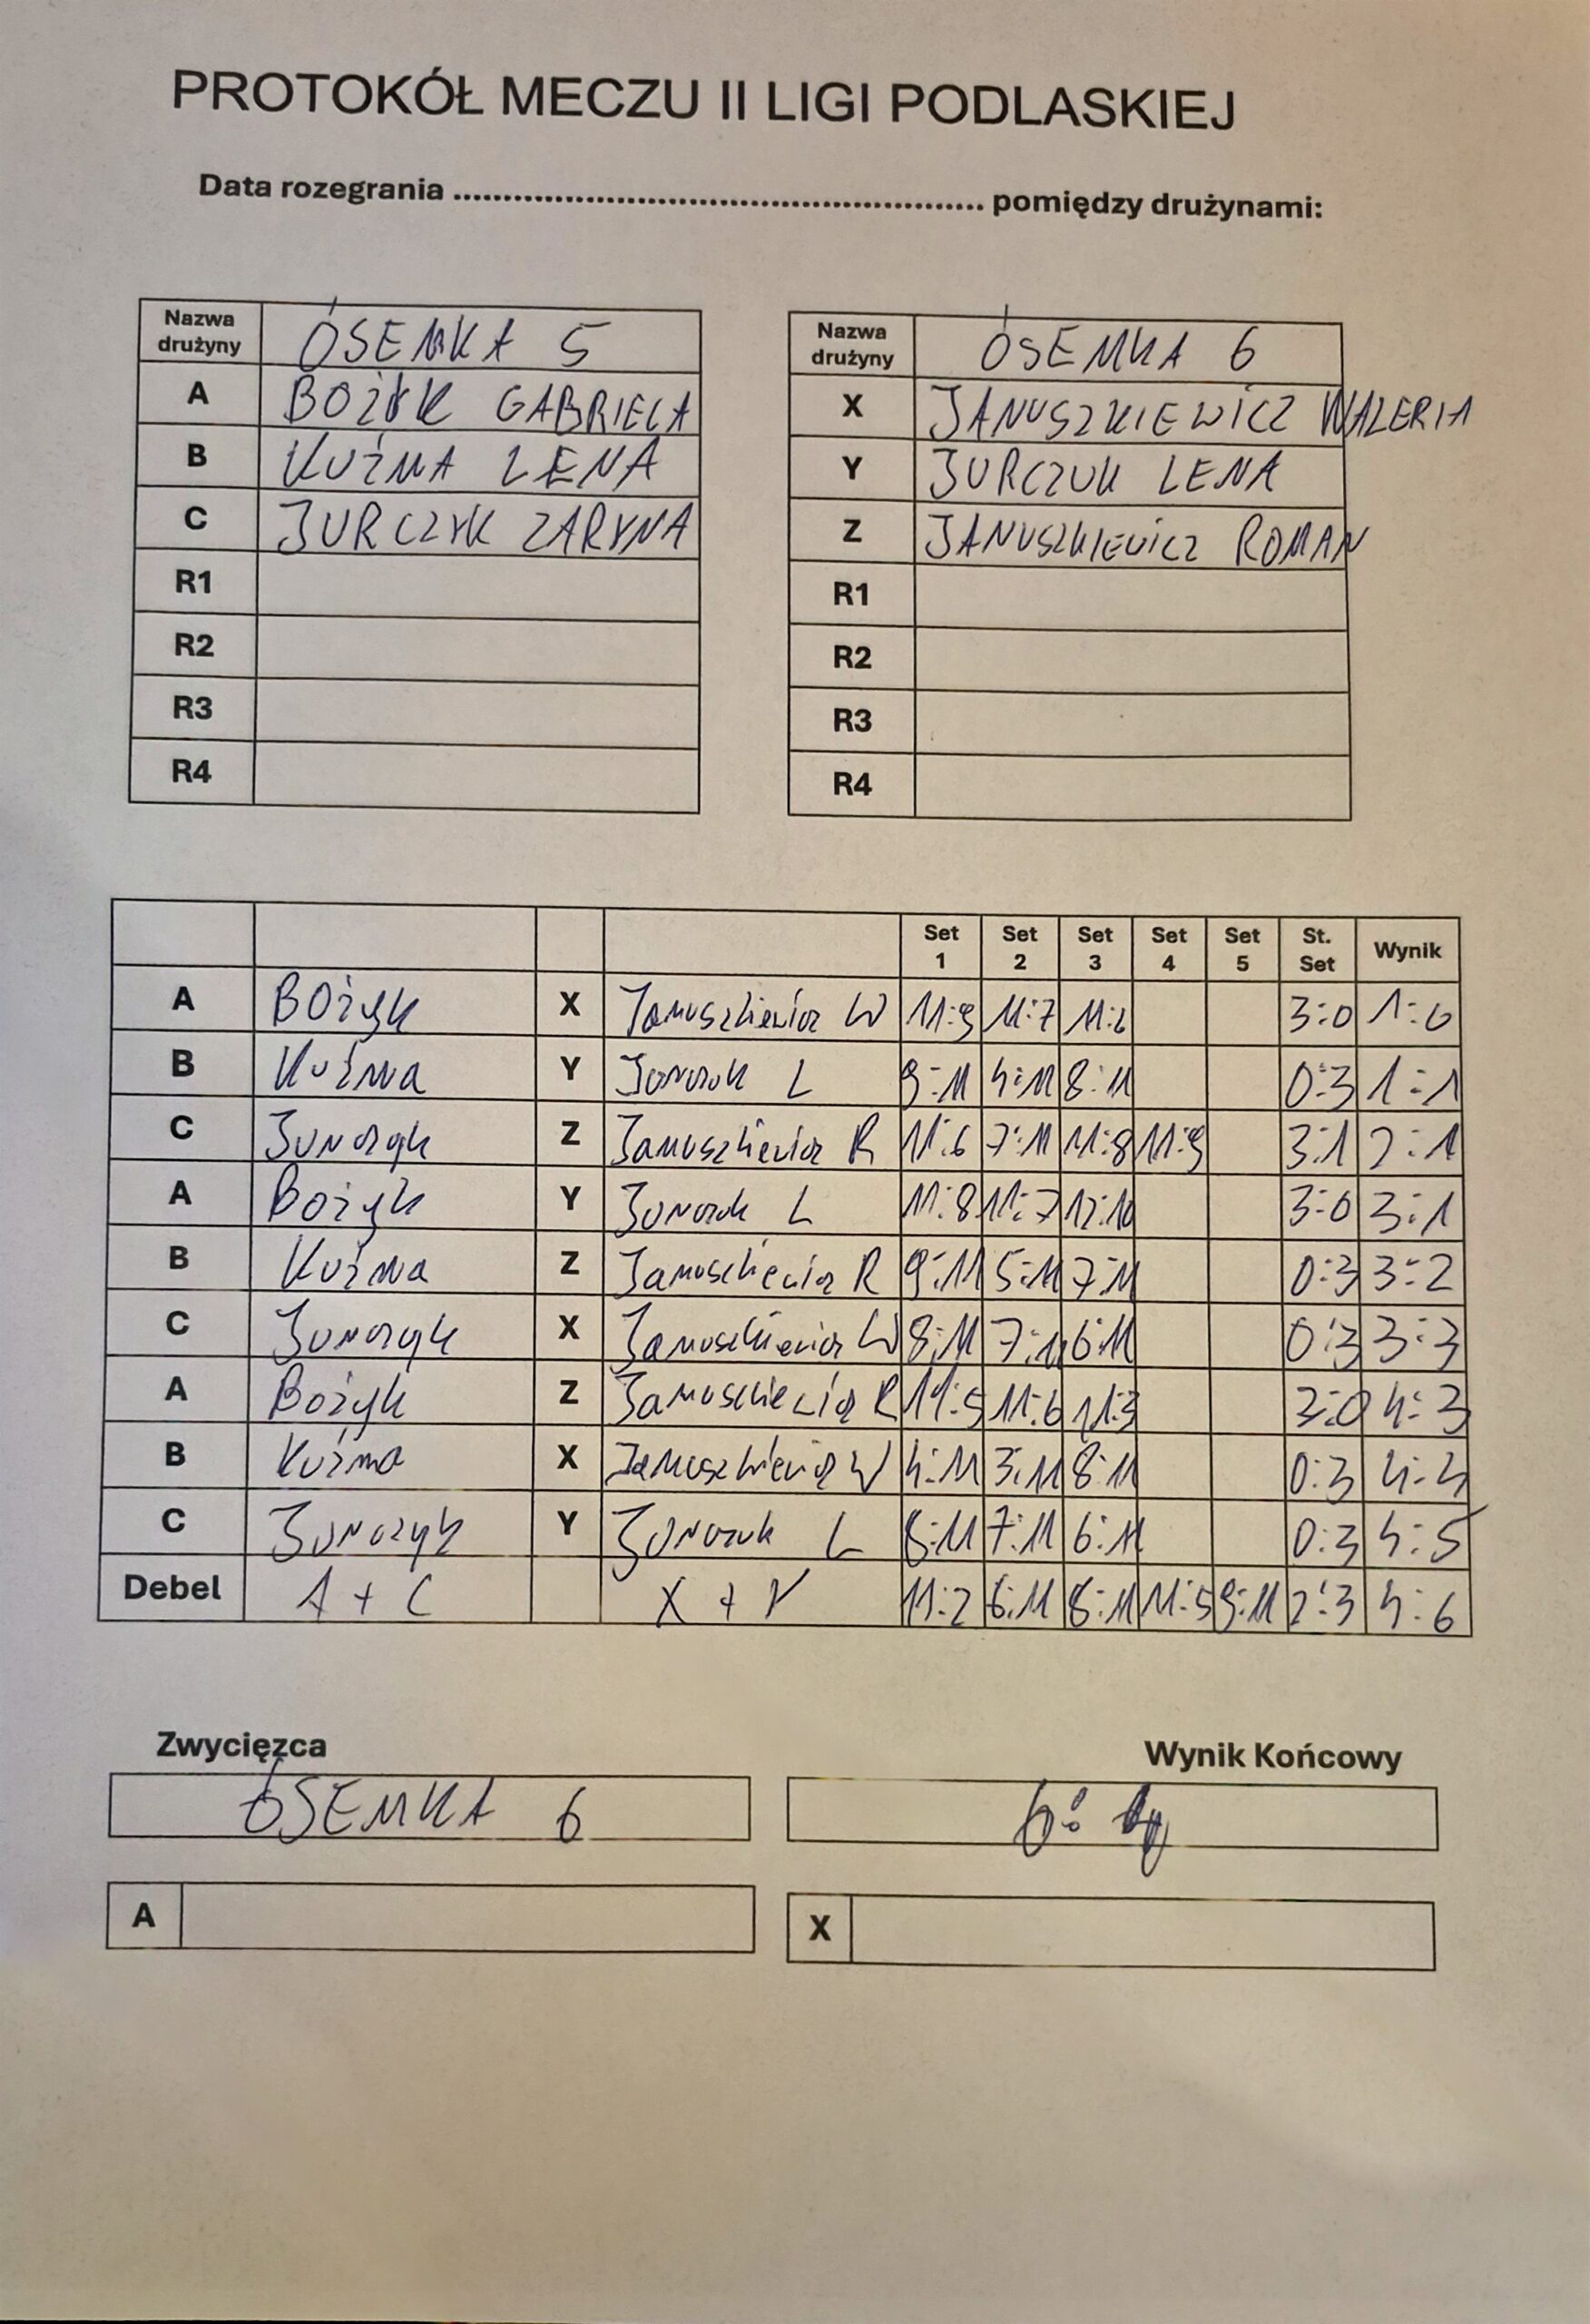 PROTOKÓŁ MECZU II LIGI PODLASKIEJ
Data rozegrania ........................................................ pomiędzy drużynami:
Nazwa drużyny ÓSEMKA 5
A BOŻYK GABRIELA
B KUŹMA LENA
C JURCZYK ZARYNA
R1
R2
R3
R4
Nazwa drużyny ÓSEMKA 6
X JANUSZKIEWICZ WALERIA
Y JURCZUK LENA
Z JANUSZKIEWICZ ROMAN
R1
R2
R3
R4
Set 1 Set 2 Set 3 Set 4 Set 5 St. Set Wynik
A Bożyk X Januszkiewicz W 11:9 11:7 11:6 3:0 1:0
B Kuźma Y Jurczuk L 9:11 4:11 8:11 0:3 1:1
C Jurczyk Z Januszkiewicz R 11:6 7:11 11:8 11:9 3:1 2:1
A Bożyk Y Jurczuk L 11:8 11:7 12:10 3:0 3:1
B Kuźma Z Januszkiewicz R 9:11 5:11 7:11 0:3 3:2
C Jurczyk X Januszkiewicz W 8:11 7:11 6:11 0:3 3:3
A Bożyk Z Januszkiewicz R 11:5 11:6 11:3 3:0 4:3
B Kuźma X Januszkiewicz W 4:11 3:11 8:11 0:3 4:4
C Jurczyk Y Jurczuk L 8:11 7:11 6:11 0:3 4:5
Debel A + C X + Y 11:2 6:11 8:11 11:5 9:11 2:3 4:6
Zwycięzca Wynik Końcowy
ÓSEMKA 6 6:4
A X